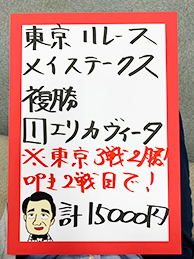 東京11レース
メイステークス
複勝
1エリカヴィータ
※東京3戦2勝!
叩き2戦目で!
計15000円